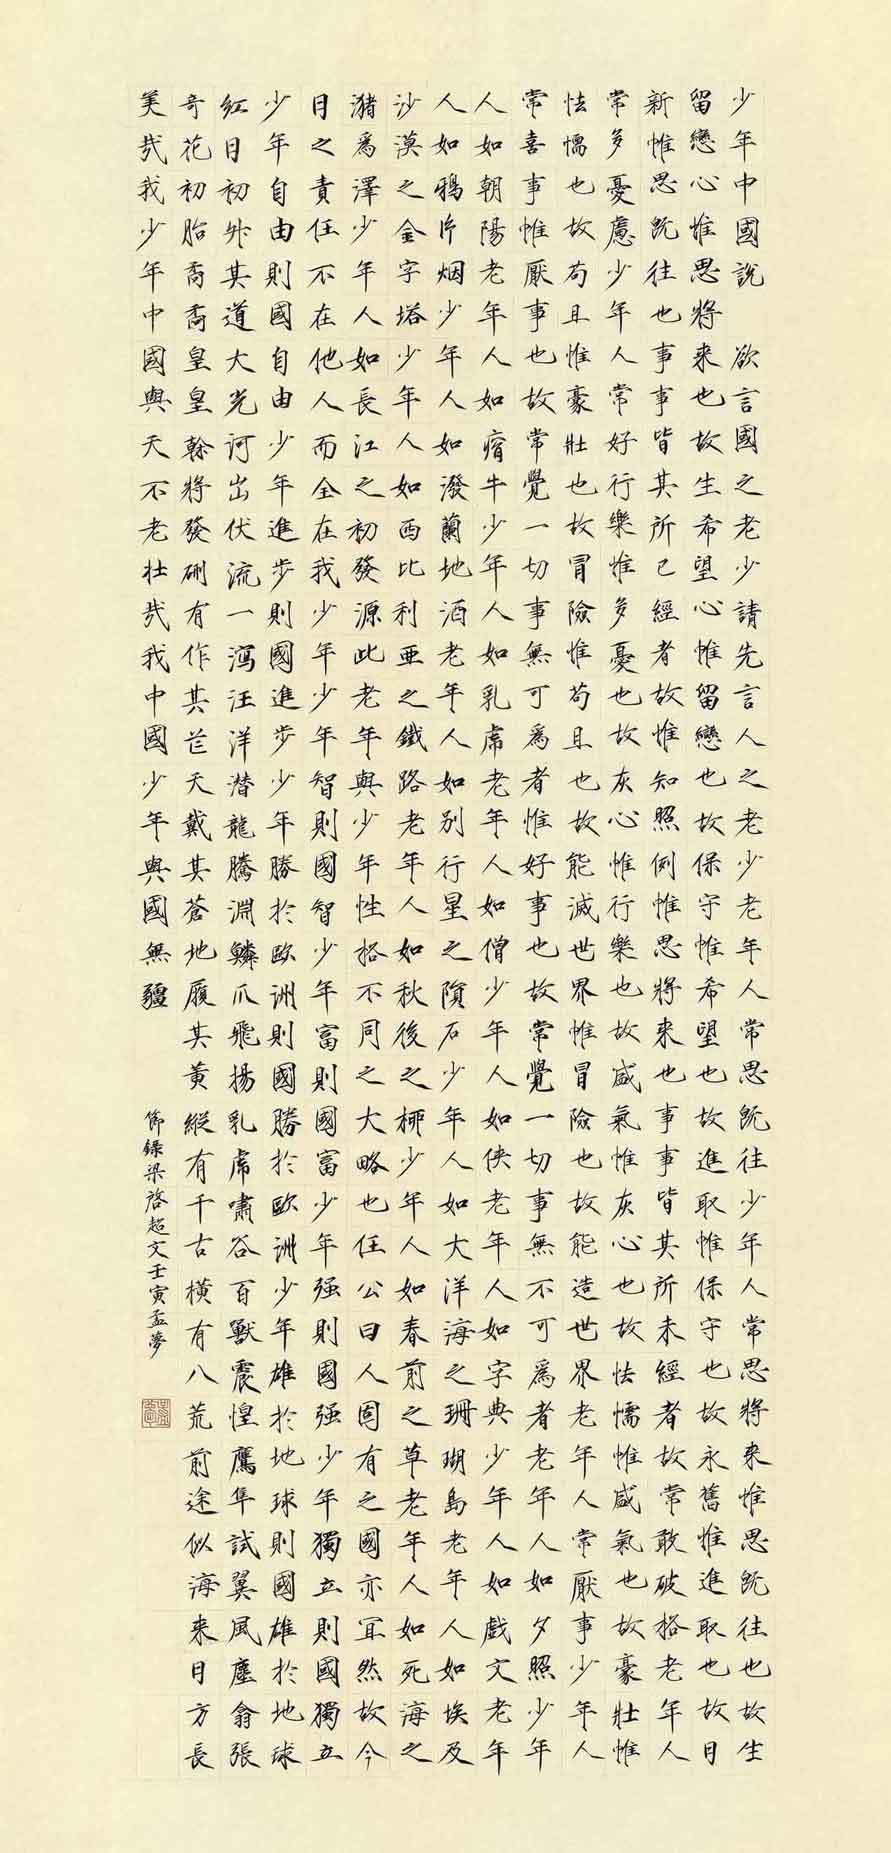 少年中國說 欲言國之老少請先言人之老少老年人常思既往少年人常思將来惟思既往也故生
留戀心惟思將来也故生希望心惟留戀也故保守惟希望也故進取惟保守也故永舊惟進取也故日
新惟思既往也事事皆其所已經者故惟知照例惟思將来也事事皆其所未經者故常敢破格老年人
常多憂慮少年人常好行樂惟多憂也故灰心惟行樂也故盛氣惟灰心也故怯懦惟盛氣也故豪壯惟
怯懦也故苟且惟豪壯也故冒險惟苟且也故能滅世界惟冒險也故能造世界老年人常厭事少年人
常喜事惟厭事也故常覺一切事無可爲者惟好事也故常覺一切事無不可爲者老年人如夕照少年
人如朝陽老年人如瘠牛少年人如乳虎老年人如僧少年人如俠老年人如字典少年人如戲文老年
人如鴉片烟少年人如潑蘭地酒老年人如别行星之隕石少年人如大洋海之珊瑚島老年人如埃及
沙漠之金字塔少年人如西比利亞之鐵路老年人如秋後之柳少年人如春前之草老年人如死海之
瀦爲澤少年人如長江之初發源此老年與少年性格不同之大略也任公曰人固有之國亦宜然故今
日之責任不在他人而全在我少年少年智則國智少年富則國富少年强則國强少年獨立則國獨立
少年自由則國自由少年進步則國進步少年勝於歐洲則國勝於歐洲少年雄於地球則國雄於地球
紅日初升其道大光河出伏流一瀉汪洋潛龍騰淵鱗爪飛揚乳虎嘯谷百獸震惶鷹隼試翼風塵翕張
奇花初胎矞矞皇皇榦將發硎有作其芒天戴其蒼地履其黄縱有千古橫有八荒前途似海来日方長
美哉我少年中國與天不老壯哉我中國少年與國無疆
節録梁啓超文壬寅孟夢